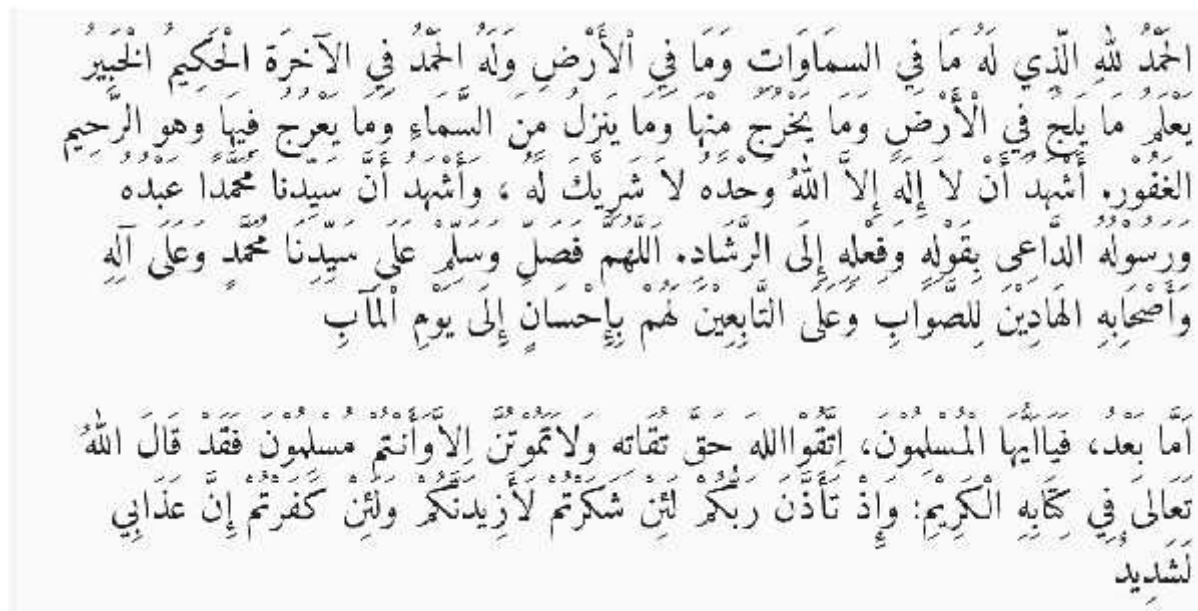 الحَمْدُ للهِ الَّذِي لَهُ مَا فِي السمَاوَاتِ وَمَا فِي اْلأَرْضِ وَلَهُ الحَمْدُ فِي الآخرَة الْحَكِيمُ الْخَبِيرُ
يَعْلَمُ مَا يَلِجُ فِي الْأَرْضِ وَمَا يَخْرُجُ مِنْهَا وَمَا يَنزلُ مِنَ السَّمَاءِ وَمَا يَعْرُجُ فِيهَا وهو الرَّحِيم
الغَفُوْر. أَشْهَدُ أَنْ لاَ إِلَهَ إِلاَّ اللهُ وَحْدَهُ لاَ شَرِيْكَ لَهُ ، وَأَشْهَدُ أَنَّ سَيِّدنا مُحَمَّدًا عَبْدُهُ
وَرَسُوْلُهُ الدَّاعِى بِقَوْلِهِ وَفِعْلِهِ إِلَى الرَّشَادِ. اَللَّهُمَّ فَصَلِّ وَسَلِّمْ عَلَى سَيِّدِنَا مُحَمَّدٍ وَعَلَى آلِهِ
وَأَصْحَابِهِ الهَادِيْنَ لِلصَّوَابِ وَعَلَى التَّابِعِيْنَ لَهُمْ بِإِحْسَانٍ إِلَى يَوْمِ اْلمَآبِ
اَمَّا بَعْدُ، فَيَااَيُّهَا الْمُسْلِمُوْنَ، اِتَّقُوْااللهَ حَقَّ تُقَاتِه وَلاَتَمُوْتُنَّ اِلاَّوَأَنْتُمْ مُسْلِمُوْنَ فَقَدْ قَالَ اللهُ
تَعَالىَ فِي كِتَابِهِ الْكَرِيْمِ: وَإِذْ تَأَذَّنَ رَبُّكُمْ لَئِنْ شَكَرْتُمْ لَأَزِيدَنَّكُمْ وَلَئِنْ كَفَرْتُمْ إِنَّ عَذَابِي
لَشَدِيدٌ